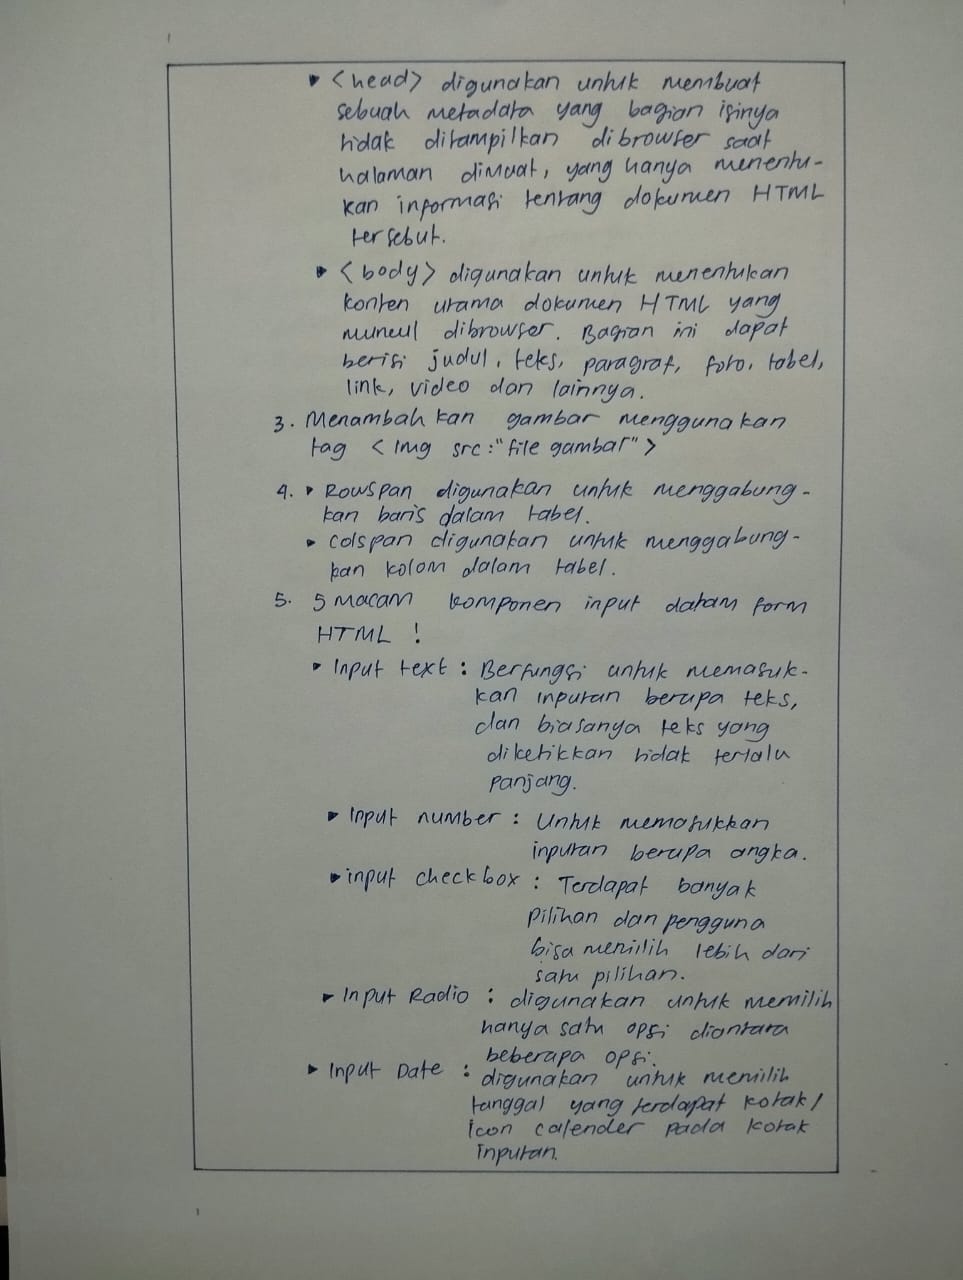 ▸ <head> digunakan untuk membuat
sebuah metadata yang bagian isinya
tidak ditampilkan dibrowser saat
halaman dimuat, yang hanya menentu-
kan informasi tentang dokumen HTML
tersebut.
▸ <body> digunakan untuk menentukan
konten utama dokumen HTML yang
muncul dibrowser. Bagian ini dapat
berisi judul, teks, paragraf, foto, tabel,
link, video dan lainnya.
3. Menambah kan gambar menggunakan
tag <Img src:"file gambar">
4. ▸ Rowspan digunakan untuk menggabung-
kan baris dalam tabel.
▸ colspan digunakan untuk menggabung-
kan kolom dalam tabel.
5. 5 macam komponen input dalam form
HTML !
▸ Input text : Berfungsi untuk memasuk-
kan inputan berupa teks,
dan biasanya teks yang
diketikkan tidak terlalu
panjang.
▸ Input number : Untuk memasukkan
inputan berupa angka.
▸ input checkbox : Terdapat banyak
pilihan dan pengguna
bisa memilih lebih dari
satu pilihan.
▸ Input Radio : digunakan untuk memilih
hanya satu opsi diantara
beberapa opsi.
▸ Input Date : digunakan untuk memilih
tanggal yang terdapat kotak/
icon calender pada kotak
inputan.